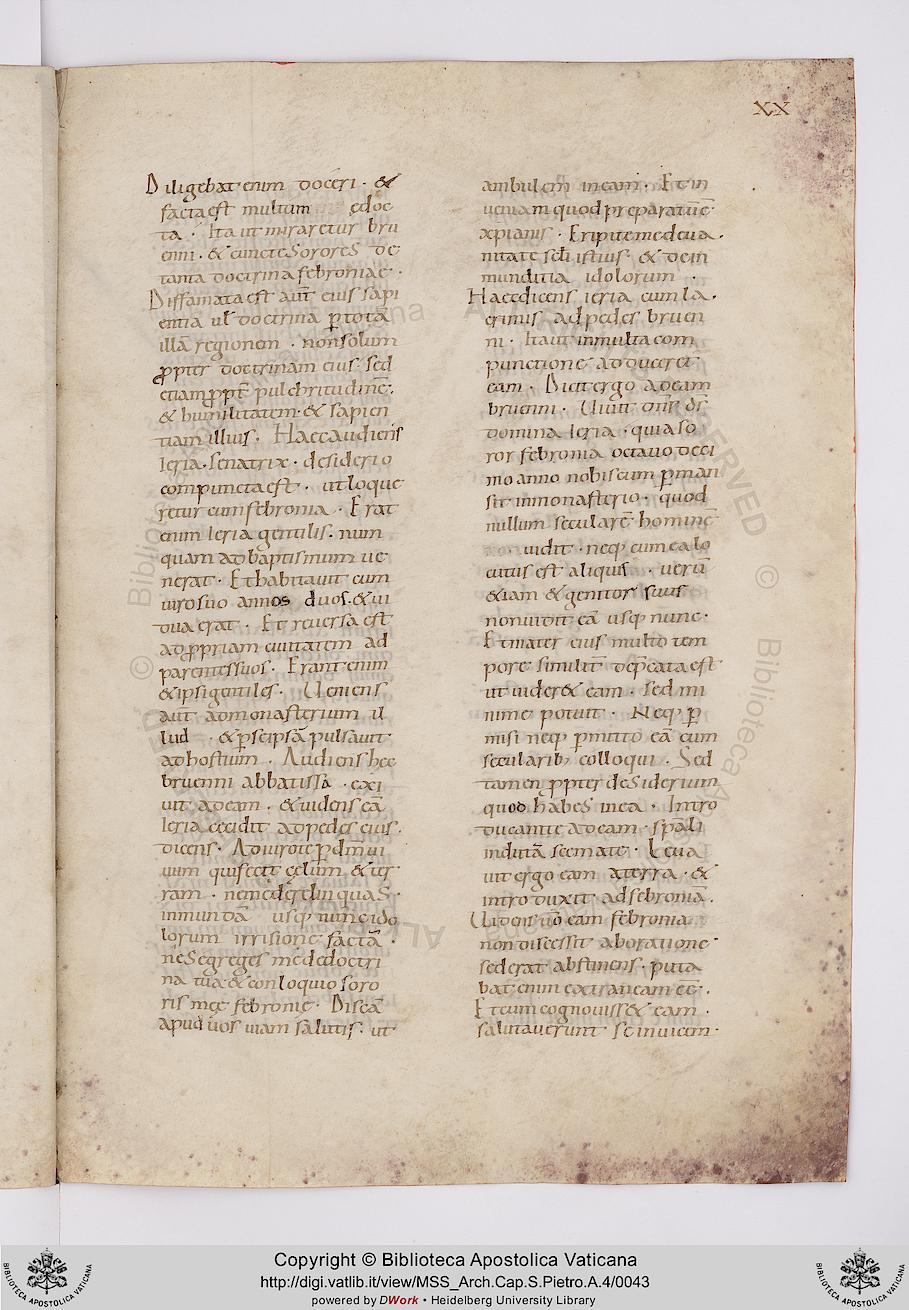 XX
Diligebat enim doceri · &
facta est multum edoc
ta · Ita ut miraretur bru
enni · & cuncte Sorores de
tanta doctrina febroniae ·
Diffamata est aut̄ eius sapi
entia ul̄ doctrina ꝑ totā
illā regionem · non solum
ꝓpter doctrinam eius · sed
etiam ꝓpt̄ pulchritudinē ·
& humilitatem · & sapien
tiam illius · Haec audiens
Ieria · senatrix · desiderio
compuncta est · ut loque
retur cum febronia · Erat
enim Ieria gentilis · num
quam ad baptismum ue
nerat · Et habitauit cum
uiro suo annos duos · & ui
dua erat · Et reuersa est
ad ꝓpriam ciuitatem ad
parentes suos · Erant enim
& ipsi gentiles · Ueniens
aut̄ ad monasterium il
lud · & ꝑ se ipsā pulsauit
ad hostium · Audiens hęc
bruenni abbatissa · exi
uit ad eam · & uidens eā
Ieria cecidit ad pedes eius ·
dicens · Adiuro te ꝑ dm̄ ui
uum qui fecit cęlum & ter
ram · ne me derelinquaS ·
inmundā usq; nunc ido
lorum irrisione factā ·
ne Segreges me de doctri
na tua & conloquio soro
ris meę febronię · Discā
apud uos uiam salutis · ut
ambulem in eam · Et in
ueniam quod preparatū ē
xpianis · Eripite me de ua ·
nitate scl̄i istius · & de in
munditia idolorum ·
Haec dicens ieria cum la ·
crimis ad pedes bruen
ni · Ita ut in multa com
punctione adduceret
eam · Dicit ergo ad eam
bruenni · Uiuit dn̄s ds̄
domina Ieria · quia so
ror febronia octauo deci
mo anno nobiscum ꝑman
sit in monasterio · quod
nullum secularē hominē
uidit · neq; cum ea lo
cutus est aliquis · uerū
etiam & genitor suus
non uidit eā usq; nunc ·
Et mater eius multo tem
pore similit̄ dep̄cata est
ut uider& eam · sed mi
nime potuit · Neq; ꝑ
misi neq; ꝑmitto eā cum
secularib; colloqui · Sed
tamen ꝓpter deSiderium
quod habeS in ea · Intro
ducam te ad eam · sp̄ali
indutā scemate · Leua
uit ergo eam a terra · &
introduxit ad febroniā ·
Uidens uō eam febronia
non discessit ab oratione ·
sed erat abstinens · puta
bat enim extraneam eē ·
Et cum cognouiss& eam ·
salutauerunt se inuicem ·
Copyright © Biblioteca Apostolica Vaticana
http://digi.vatlib.it/view/MSS_Arch.Cap.S.Pietro.A.4/0043
powered by DWork • Heidelberg University Library